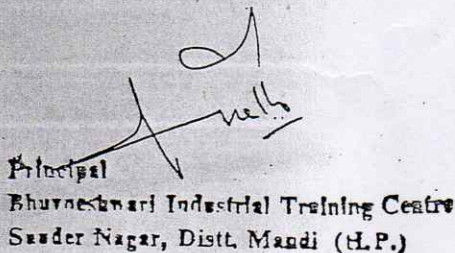 Principal
Bhuvneshwari Industrial Training Centre
Sunder Nagar, Distt. Mandi (H.P.)